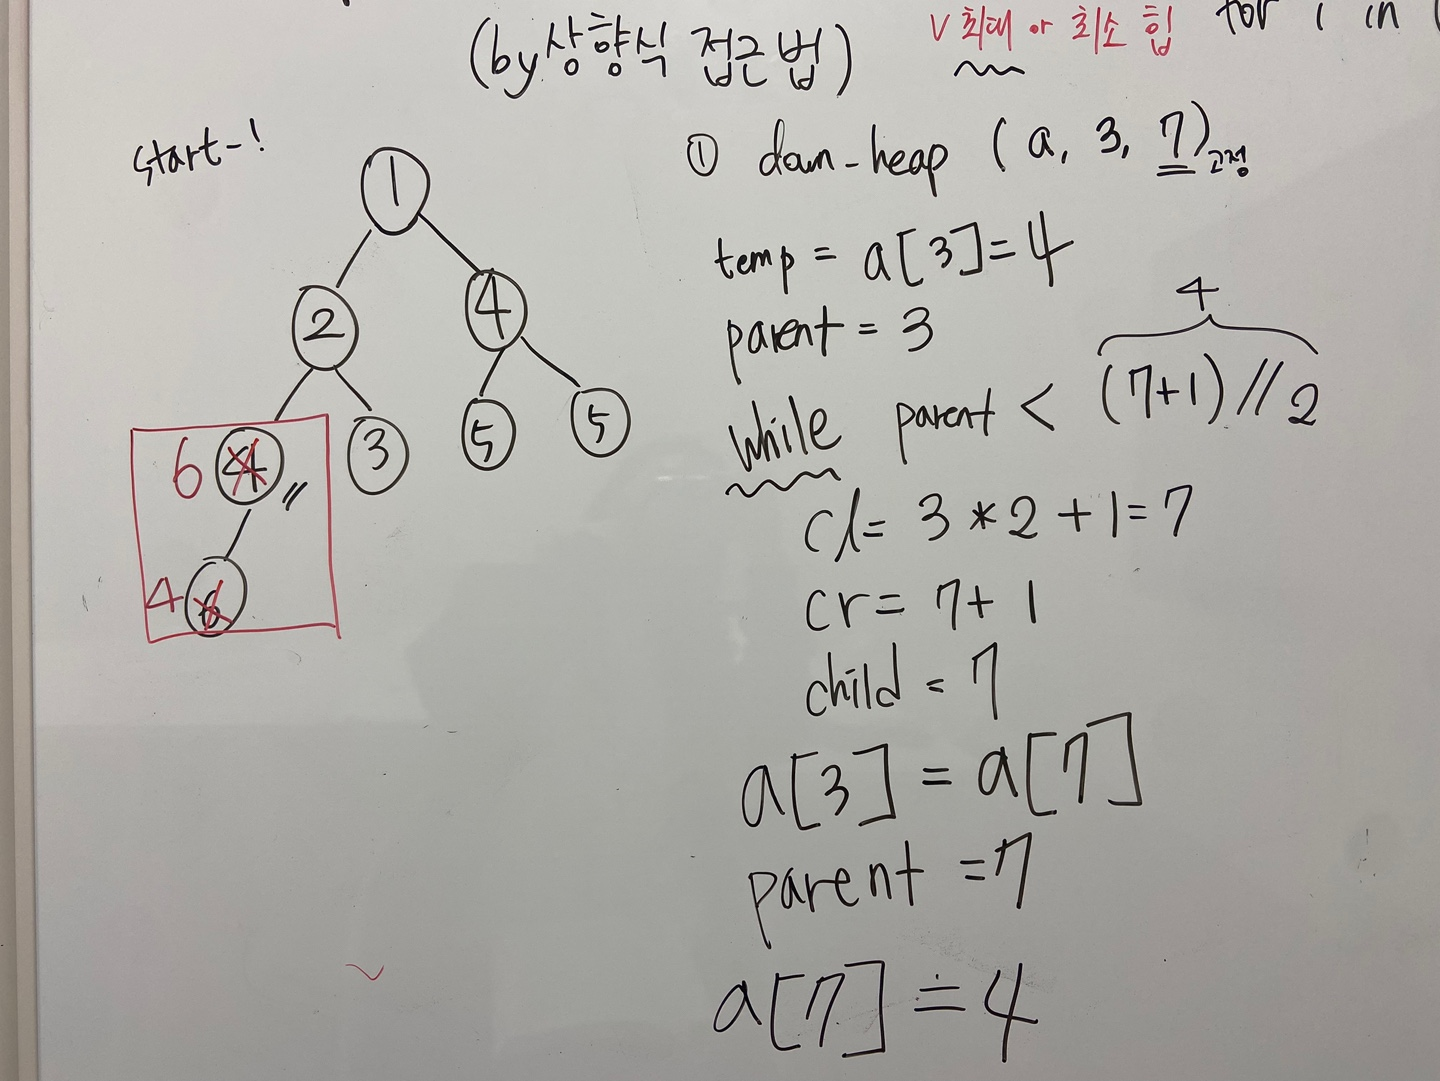 (by상향식 접근법)
V 최대 or 최소 힙
for i in (
start-!
1
2 4
6 4 3 5 5
4 6
① down-heap (a, 3, 7) 고정
temp = a[3]=4
parent = 3
4
while parent < (7+1)//2
cl= 3*2+1=7
cr= 7+1
child = 7
a[3] = a[7]
parent =7
a[7] = 4